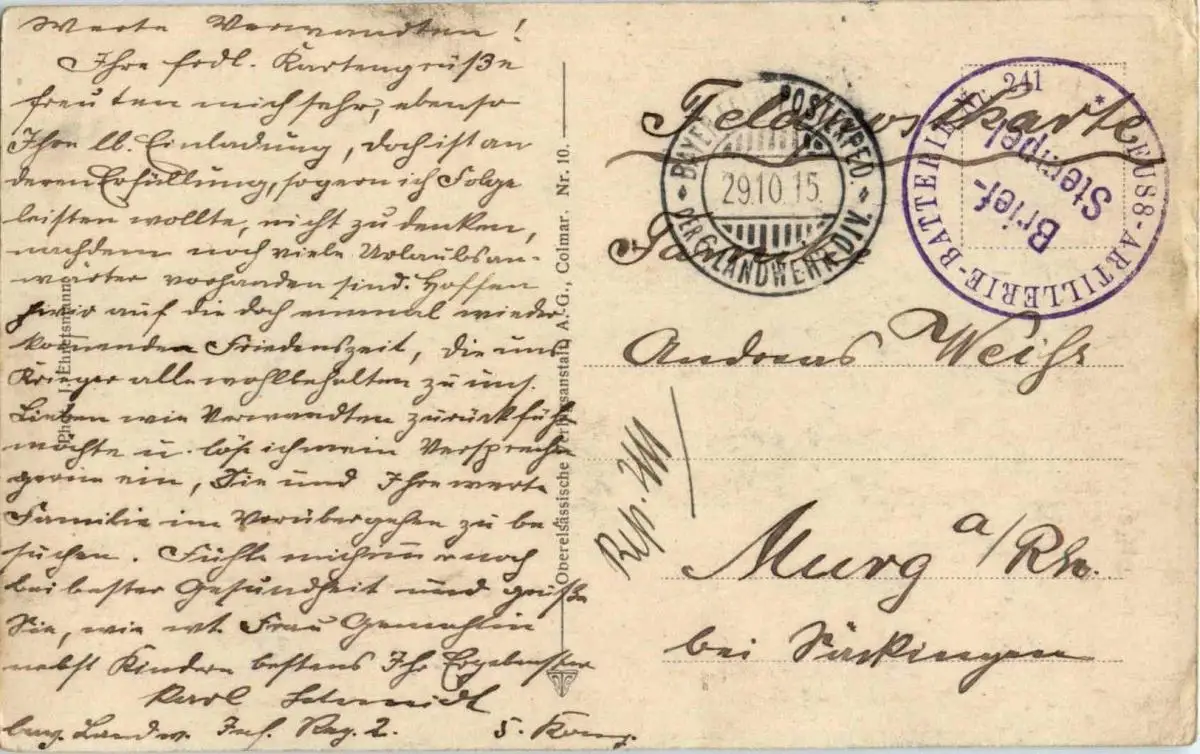 Werte Verwandten!
Ihre frdl. Kartengrüße
freuten mich sehr, ebenso
Ihre lb. Einladung, doch ist an
deren Erfüllung, so gern ich Folge
leisten wollte, nicht zu denken,
nachdem noch viele Urlaubsan-
wärter vorhanden sind. Hoffen
wir auf die doch einmal wieder
kommenden Friedenszeit, die uns
Krieger alle wohlbehalten zu uns.
Lieben wie Verwandten zurückführ
möchte u. löse ich mein Versprechen
gerne ein, Sie und Ihre werte
Familie im Vorübergehen zu be
suchen. Fühle mich noch
bei bester Gesundheit und grüße
Sie, wie wt. Frau Gemahlin
nebst Kindern bestens Ihr Ergebenster
Karl Schmidt
bay. Landw. Inf. Reg. 2. 5. Komp.
Phot. J. Ehretsmann
Oberelsässische Verlagsanstalt A.G., Colmar. Nr. 10.
Feldpostkarte
BAYER. POSTEXPED.
29.10.15
DER 6. LANDWEHR-DIV.
FUSS-ARTILLERIE-BATTERIE Nr. 241
Brief-
Stempel
Familie
Andreas Weiß
Murg a/Rh.
bei Säckingen